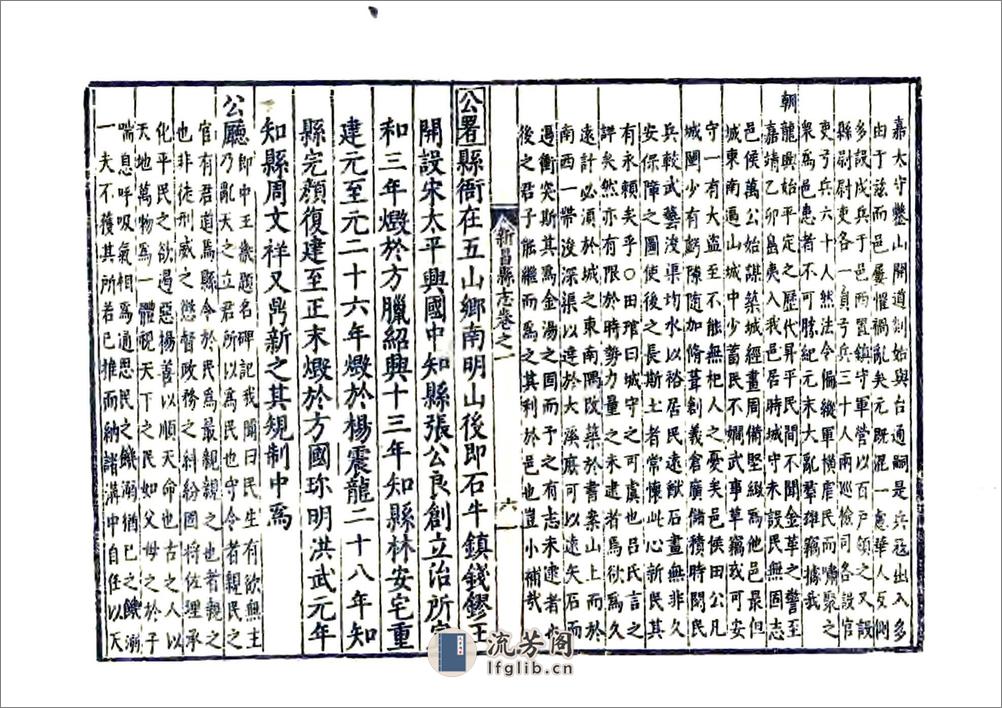 嘉太守鑿山開道剏始與台通嗣是兵寇出入多
由于茲而邑屢罹禍亂矣元既混一慮華人反側
多設戍兵于邑西置鎮守軍營以百戶領之又設
縣尉尉吏各一員弓兵三十人兩巡檢司各設官
吏弓兵六十人然法令偏縱軍橫虐民而嘯聚之
衆為邑患者不可勝紀元末大亂羣雄竊據我
朝龍興始平定之歷代昇平民間不聞金革之警至
嘉靖乙卯島夷入我邑居時城守未設民無固志
邑侯萬公始謀築城經畫周備堅緻為他邑最但
城東南逼山城中少蓄民不嫺武事草竊或可安
守一有大盜至不能無杞人之憂矣邑侯田公凡
城闉少有虧隙隨加脩葺創義倉廣儲積時閱民
兵較武藝浚渠均水以裕居民遠猷石畫無非久
安保障之圖使後之長斯土者常懷此心新民其
有永賴矣乎○田琯曰城守之可虞也呂氏言之
詳矣然亦有限於時勢力量之未可逮者焉欲為久
遠計必須於城之東南隅改築於書案山上而於
南西一帶浚深渠以達於大溪庶可以遠矢石而
遏衝突斯其為金湯之固而予之有志未逮者也
後之君子能繼而為之其利於邑也豈小補哉
新昌縣志卷之一
六
公署縣衙在五山鄉南明山後即石牛鎮錢鏐王
開設宋太平興國中知縣張公良創立治所宣
和三年燬於方臘紹興十三年知縣林安宅重
建元至元二十六年燬於楊震龍二十八年知
縣完顏復建至正末燬於方國珍明洪武元年
知縣周文祥又鼎新之其規制中為
公廳即中王㡬題名碑記我聞曰民生有欲無主
乃亂天之立君所以為民也守令者親民之
官有君道焉縣令於民為最親親之也者親之
也非徒刑威之懲督政務之糾紛國將佐理承
化平民之欲遏惡楊善以順天命也古之人以
天地萬物為一體視天下之民如父母之於子
喘息呼吸氣相為通思民之饑溺猶己之饑溺
一夫不獲其所若己推而納諸溝中自任以天
流芳閣
lfglib.cn